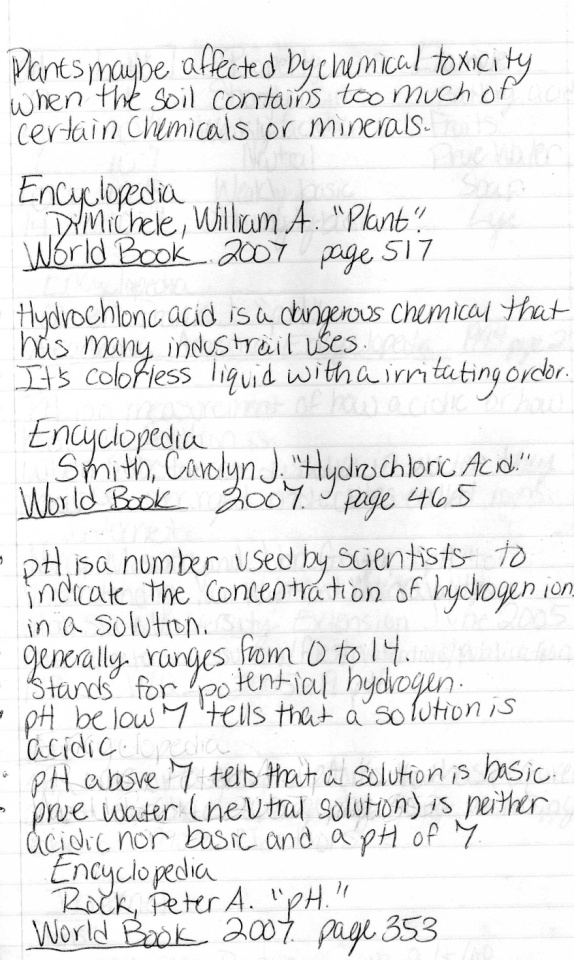 Plants maybe affected by chemical toxicity
when the soil contains too much of
certain chemicals or minerals.
Encyclopedia
DiMichele, William A. "Plant".
World Book 2007 page 517
Hydrochloric acid is a dangerous chemical that
has many industrail uses.
It's colorless liquid with a irritating ordor.
Encyclopedia
Smith, Carolyn J. "Hydrochloric Acid."
World Book 2007. page 465
pH is a number used by scientists to
indicate the concentration of hydrogen ion
in a solution.
generally ranges from 0 to 14.
Stands for potential hydrogen.
pH below 7 tells that a solution is
acidic.
pH above 7 tells that a solution is basic.
prue water (neutral solution) is neither
acidic nor basic and a pH of 7.
Encyclopedia
Rock, Peter A. "pH."
World Book 2007. page 353